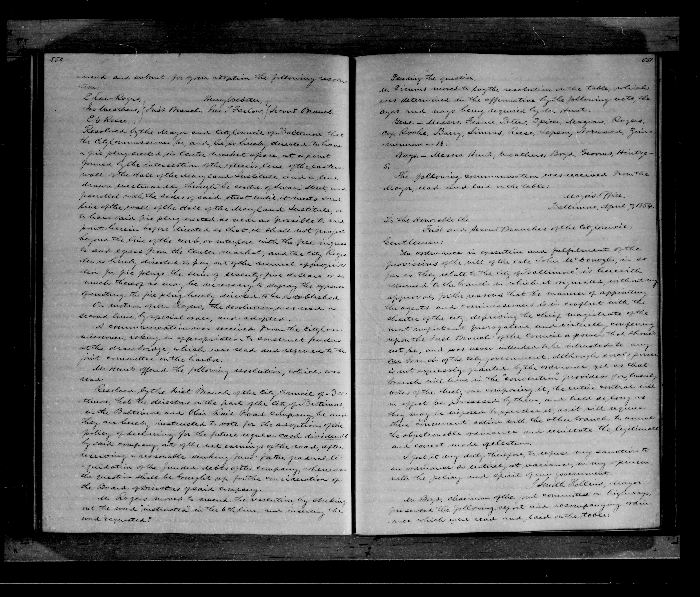 550
mend and submit for your adoption the following resolu-
tion:
Resolved by the Mayor and City Council of Baltimore, that
the City Commissioner be, and he is hereby directed to have
a fire plug erected in Center Market space, at a point
formed by the intersection of the
wall of the Hall of the Maryland Institute and a line
drawn westwardly through the centre of Swan street and
parallel with the sides of said street until it meets said
line of the wall of the Hall of the Maryland Institute, or
to have said fire plug erected as near as possible to said
point herein before located so that it shall not project
beyond the line of the curb, or interfere with the free ingress
to and egress from the Center Market, and the City Regis-
ter is hereby directed to pay out of the annual appropria-
tion for fire plugs the sum of seventy five dollars or so
much thereof as may be necessary to defray the expense
of erecting the fire plug hereby directed to be established.
On motion of Mr. Rogers, the resolution was read a
second time, by special order, and adopted.
A communication was received from the City Com-
missioner, asking an appropriation to construct fenders
at the drawbridge, which was read and referred to the
joint committee on the harbor.
Mr. Hunt offered the following resolution, which was
read:
Resolved, by the First Branch of the City Council of Bal-
timore, that the directors on the part of the City of Baltimore
in the Baltimore and Ohio Rail Road Company be, and
they are hereby instructed to vote for the adoption of the
policy of declaring for the future regular cash dividends
by said company out of the net earnings of the road, after
reserving a reasonable sinking fund for the gradual li-
quidation of the funded debt of the company, whenever
the question shall be brought up for the consideration of
the Board of Directors of said company.
Mr. Rogers moved to amend the resolution by striking
out the word "instructed" in the 4th line, and inserting the
word "requested."
551
Pending the question
Mr. Simms moved to lay the resolution on the table, which
was determined in the affirmative by the following vote, the
ayes and nays being required by Mr. Hunt.
The following communication was received from the
Mayor, read and laid on the table:
Mayor's Office,
Baltimore, April 7, 1854.
To the Honorable the
First and Second Branches of the City Council:
Gentlemen:
The ordinance in execution and fulfilment of the
provisions of the will of the late John McDonogh, in so
far as they relate to the city of Baltimore is herewith
returned to the branch in which it originated without my
approval, for the reasons that the manner of appointing
the agents and commissioners is in conflict with the
charter of the city, depriving the chief magistrate of the
most important prerogative and virtually conferring
upon the First Branch of the Council a power that should
not be, and was never intended to be entrusted to any
one branch of the city government. Although such power
is not expressly granted by the ordinance, yet as that
branch will have in the convention provided for twenty
votes of the thirty composing it, the entire control will
in effect be possessed by them, and held as long as
they may be disposed to exercise it, as it will require
their concurrent action with the other branch to annul
the objectionable ordinance and reinstate the legitimate
and correct mode of selection.
I feel it my duty, therefore, to refuse my sanction to
an ordinance so entirely at variance, in my opinion
with the policy and spirit of our government.
Smith Hollins, Mayor
Mr. Boyd, chairman of the joint committee on highways,
presented the following report and accompanying ordi-
nance which were read and laid on the table: